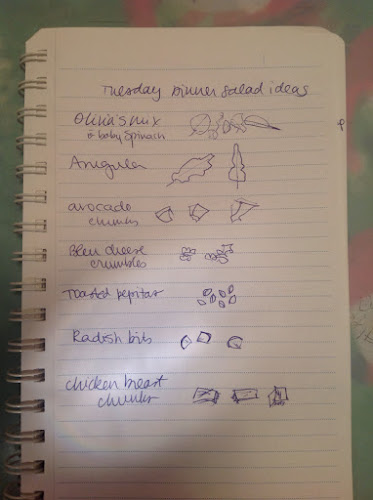 Tuesday Dinner Salad ideas
Olivia's mix
& baby spinach
Arugula
avocado
chunks
Bleu cheese
crumbles
Toasted pepitas
Radish bits
chicken breast
chunks